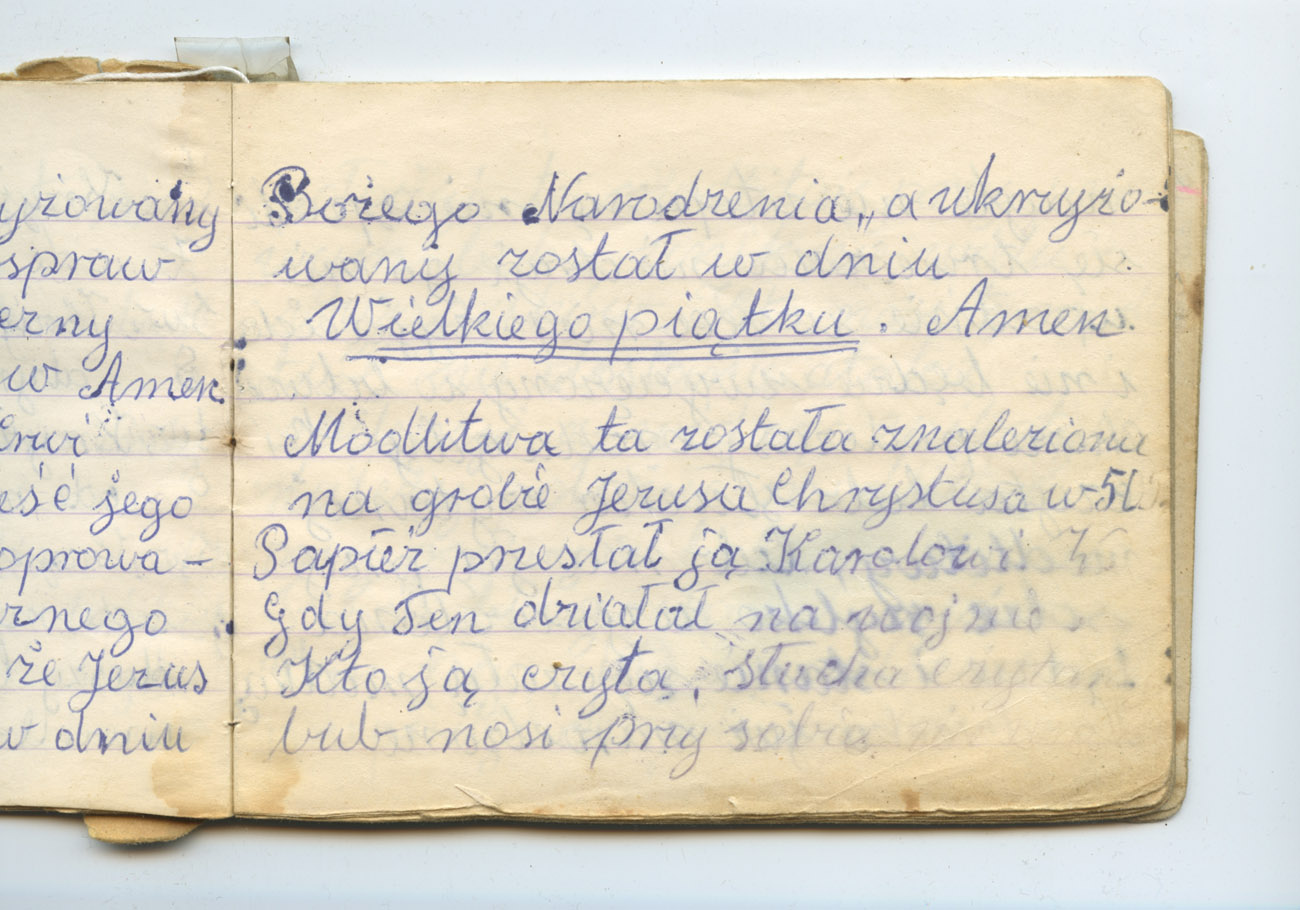 yżowany
spraw
erny
w Amen.
Krwi
eść jego
oprowa-
rnego
że Jezus
w dniu
Bożego Narodzenia „ a ukrzyżo-
wany został w dniu
Wielkiego piątku. Amen.
Modlitwa ta została znaleziona
na grobie Jezusa Chrystusa w
Papież przesłał ją Karolowi
Gdy Ten działał na wojnie
Kto ją czyta, słucha czytani
lub nosi przy sobie nie